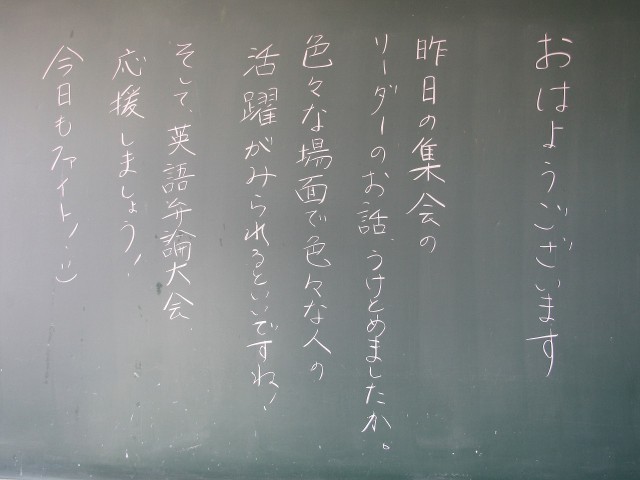 おはようございます
昨日の集会の
リーダーのお話、うけとめましたか。
色々な場面で色々な人の
活躍がみられるといいですね！
そして、英語弁論大会、
応援しましょう！
今日もファイト！:)